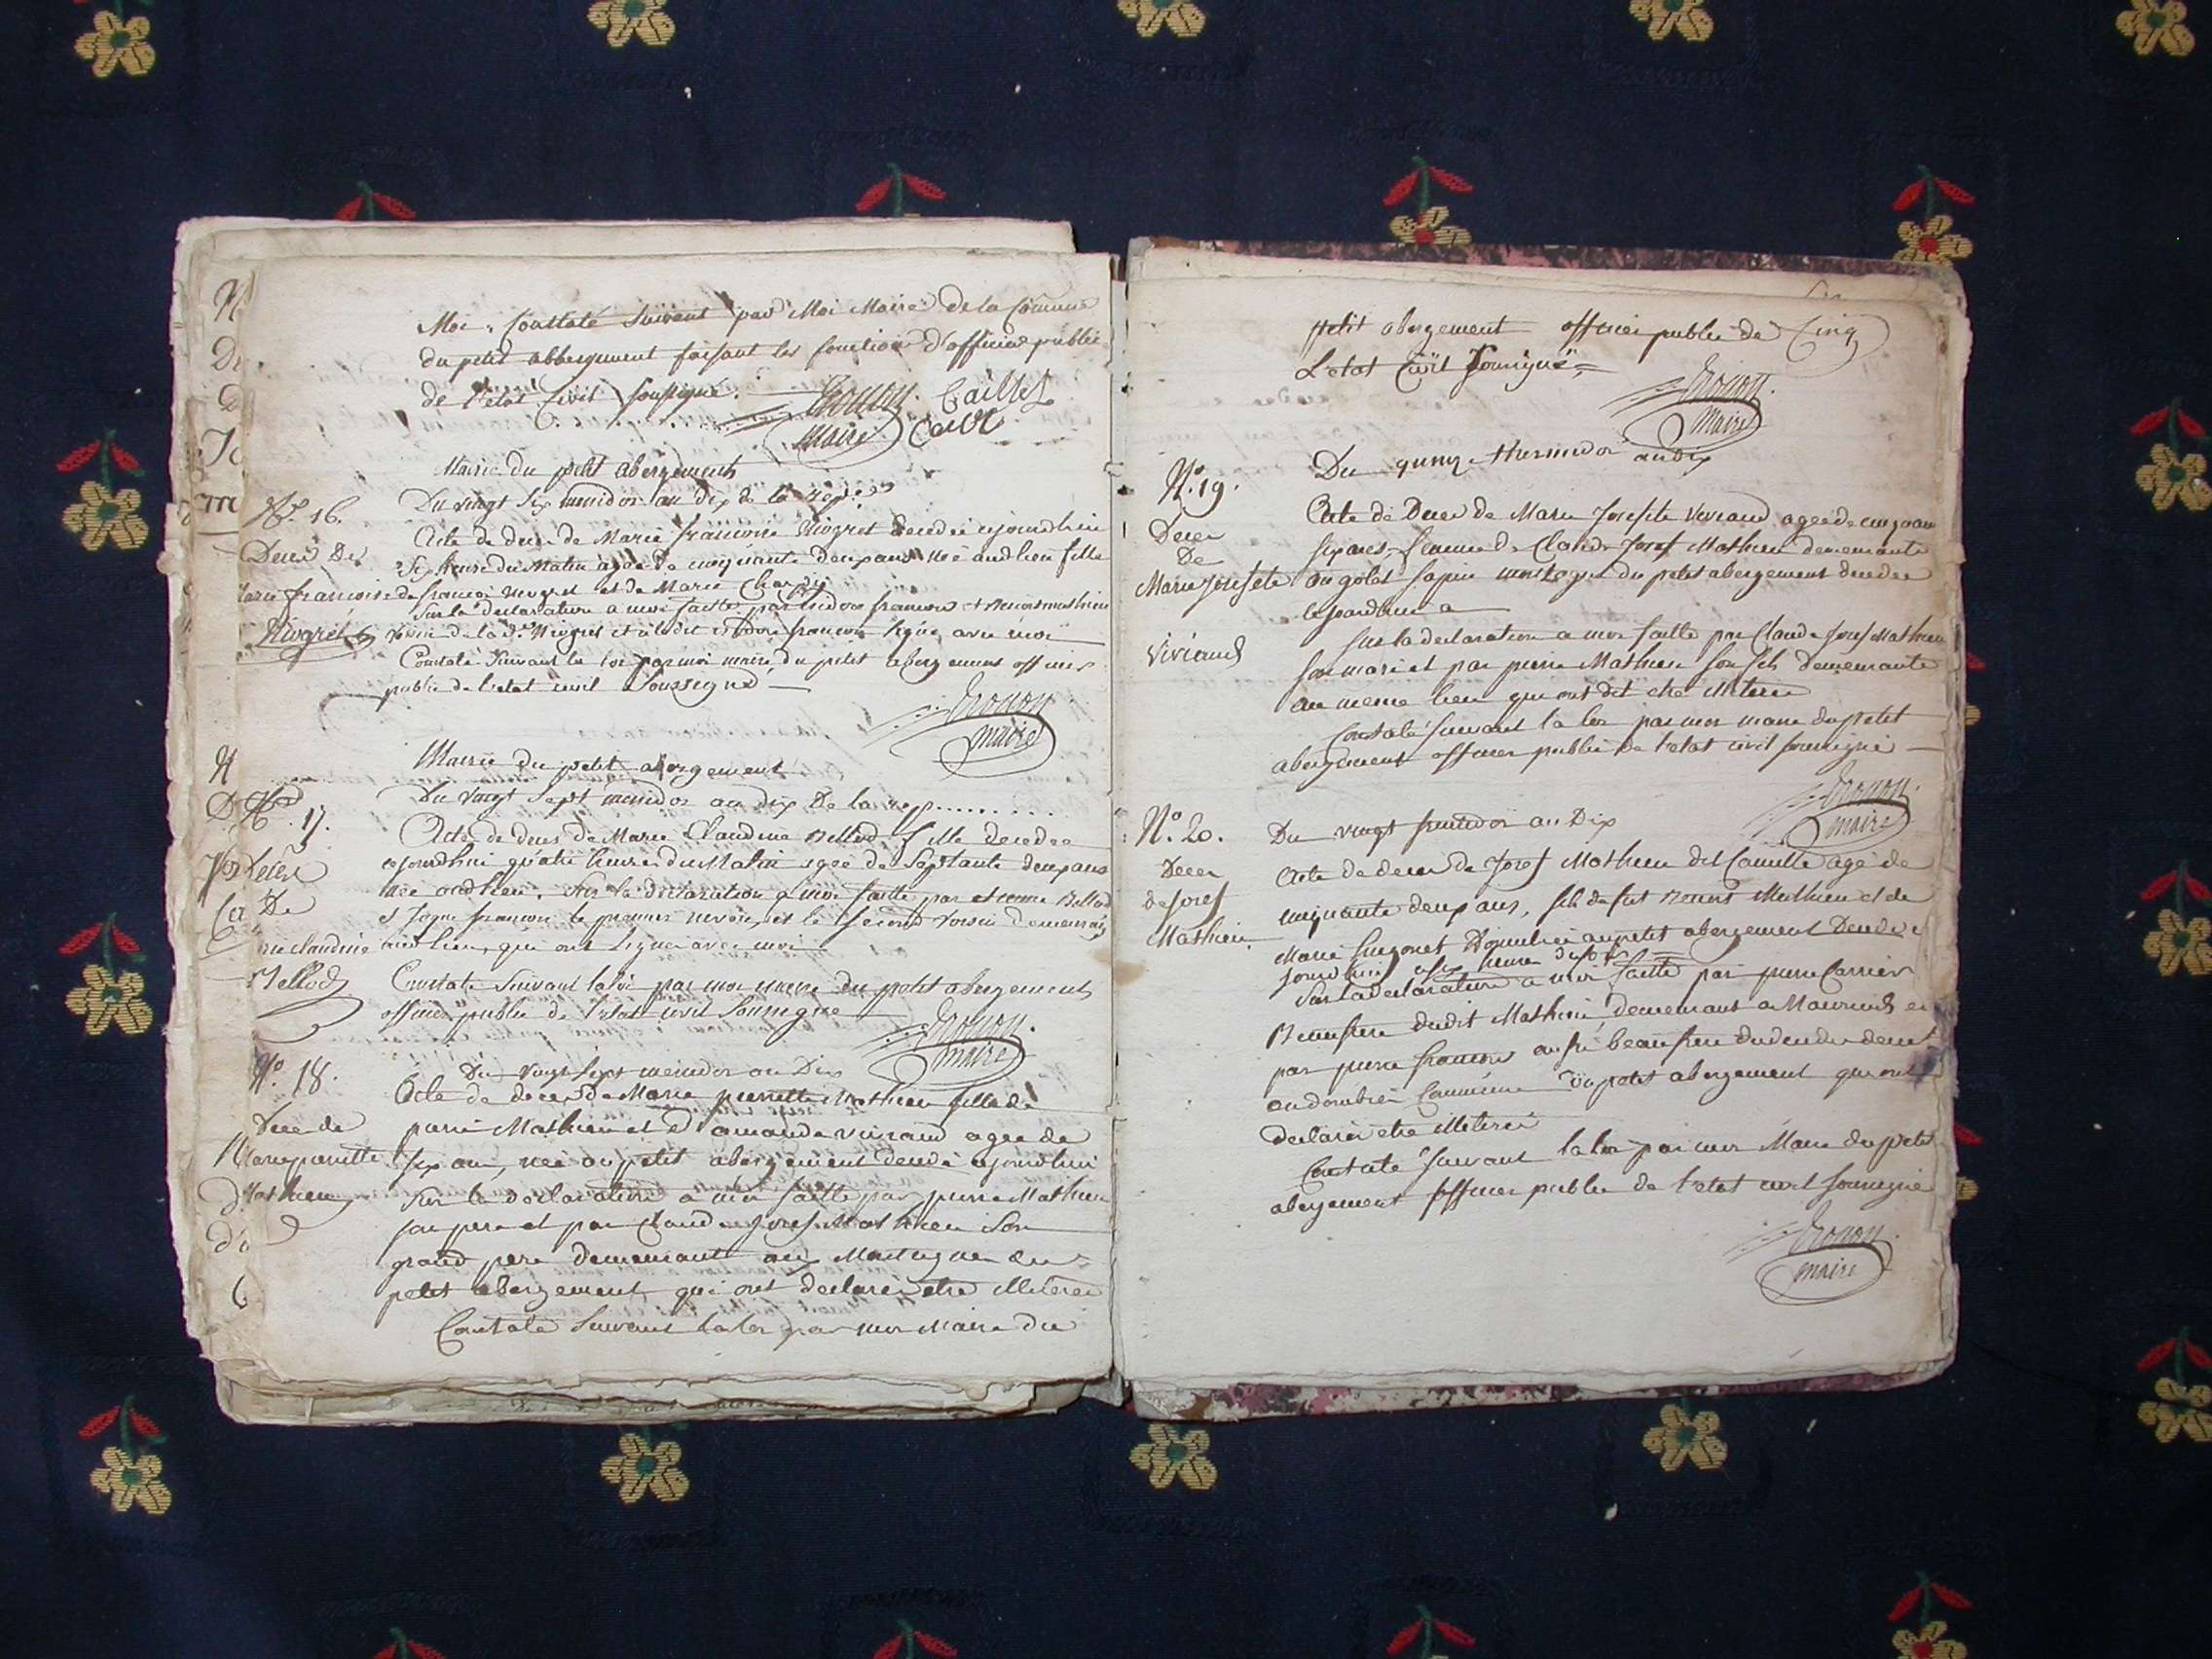 Moi. Constaté Suivant par Moi Maire de la Commune
du petit abbergement faisant les fonction d'officier public
de l'etat Civil soussigné.
maire
Mairie du petit abergement
Nº. 16.
Du vingt six messidor an dix de la rep.
Deces De
Marie francoise
Nivgret
Acte de deces de Marie francoise Nivgret decedée ajourdhui
Six heure du Matin agée de cinquante deux ans née audlieu fille
de francois nivgret et de Marie
Sur la declaration a moi faitte par
voisin de la d. Nivgret et ledit francois signé avec moi
Constaté Suivant la loi par moi maire du petit abergement officier
public de l'etat civil Soussigné
maire
Mairie du petit abergement
Nº. 17.
Du vingt Sept messidor an dix De la rep........
Decès
De
marie claudine
Bellod
Acte de deces de Marie Claudine Bellod fille decedée
ajourdhui quatre heure du Matin agée de Septante deux ans
née audlieu. Sur la declaration a moi faitte par etienne Bellod
et francois le premier neveu, et le second voisin demeurant
audlieu, qui ont signer avec moi
Constaté Suivant la loi par moi maire du petit abergement
officier public de l'etat civil Soussigné
maire
Nº. 18.
Du vingt sept messidor an Dix
Dece de
Marie pierrette
Mathieu
Acte de deces de Marie pierrette Mathieu fille de
pierre Mathieu et d'amande viviand agée de
six ans, née au petit abergement decedé ajourdhui
Sur la declaration a moi faitte par pierre Mathieu
son pere et par Claude Josef Mathieu Son
grand pere demeurant aux Montagnes du
petit abergement qui ont declarer etre illiterer
Constaté Suivant la loi par moi Maire du
petit abergement officier public de Cinq
L'etat Civil soussigné
maire
Nº. 19.
Du quinze thermidor an dix
Decer
De
Marie Josefete
Viviand
Acte de Deces de Marie Josefete Viviand agée de
femme de Claude Josef Mathieu demeurante
au golet sapin montagne du petit abergement decedée
Sur la declaration a moi faitte par Claude Josef Mathieu
son mari et par pierre Mathieu son fils demeurante
au meme lieu qui ont dit etre illiterer
Constaté suivant la loi par moi maire du petit
abergement officier public de l'etat civil soussigné
maire
Nº. 20.
Du vingt fructidor an Dix
Decer
de Josef
Mathieu
Acte de deces de Josef Mathieu dit Camille agé de
cinquante deux ans, fils de fut Benoit Mathieu et de
Marie hugonet Domicilié au petit abergement Decedé
jourdhuy a six heures du
Sur la declaration a moi faitte par pierre Carrier
Beaufrere dudit Mathieu demeurant a
par pierre francois aussi beaufrere du decedé
Commune du petit abergement qui ont
declarer etre illiterer
Constaté suivant la loi par moi Maire du petit
abergement officier public de l'etat civil soussigné
maire